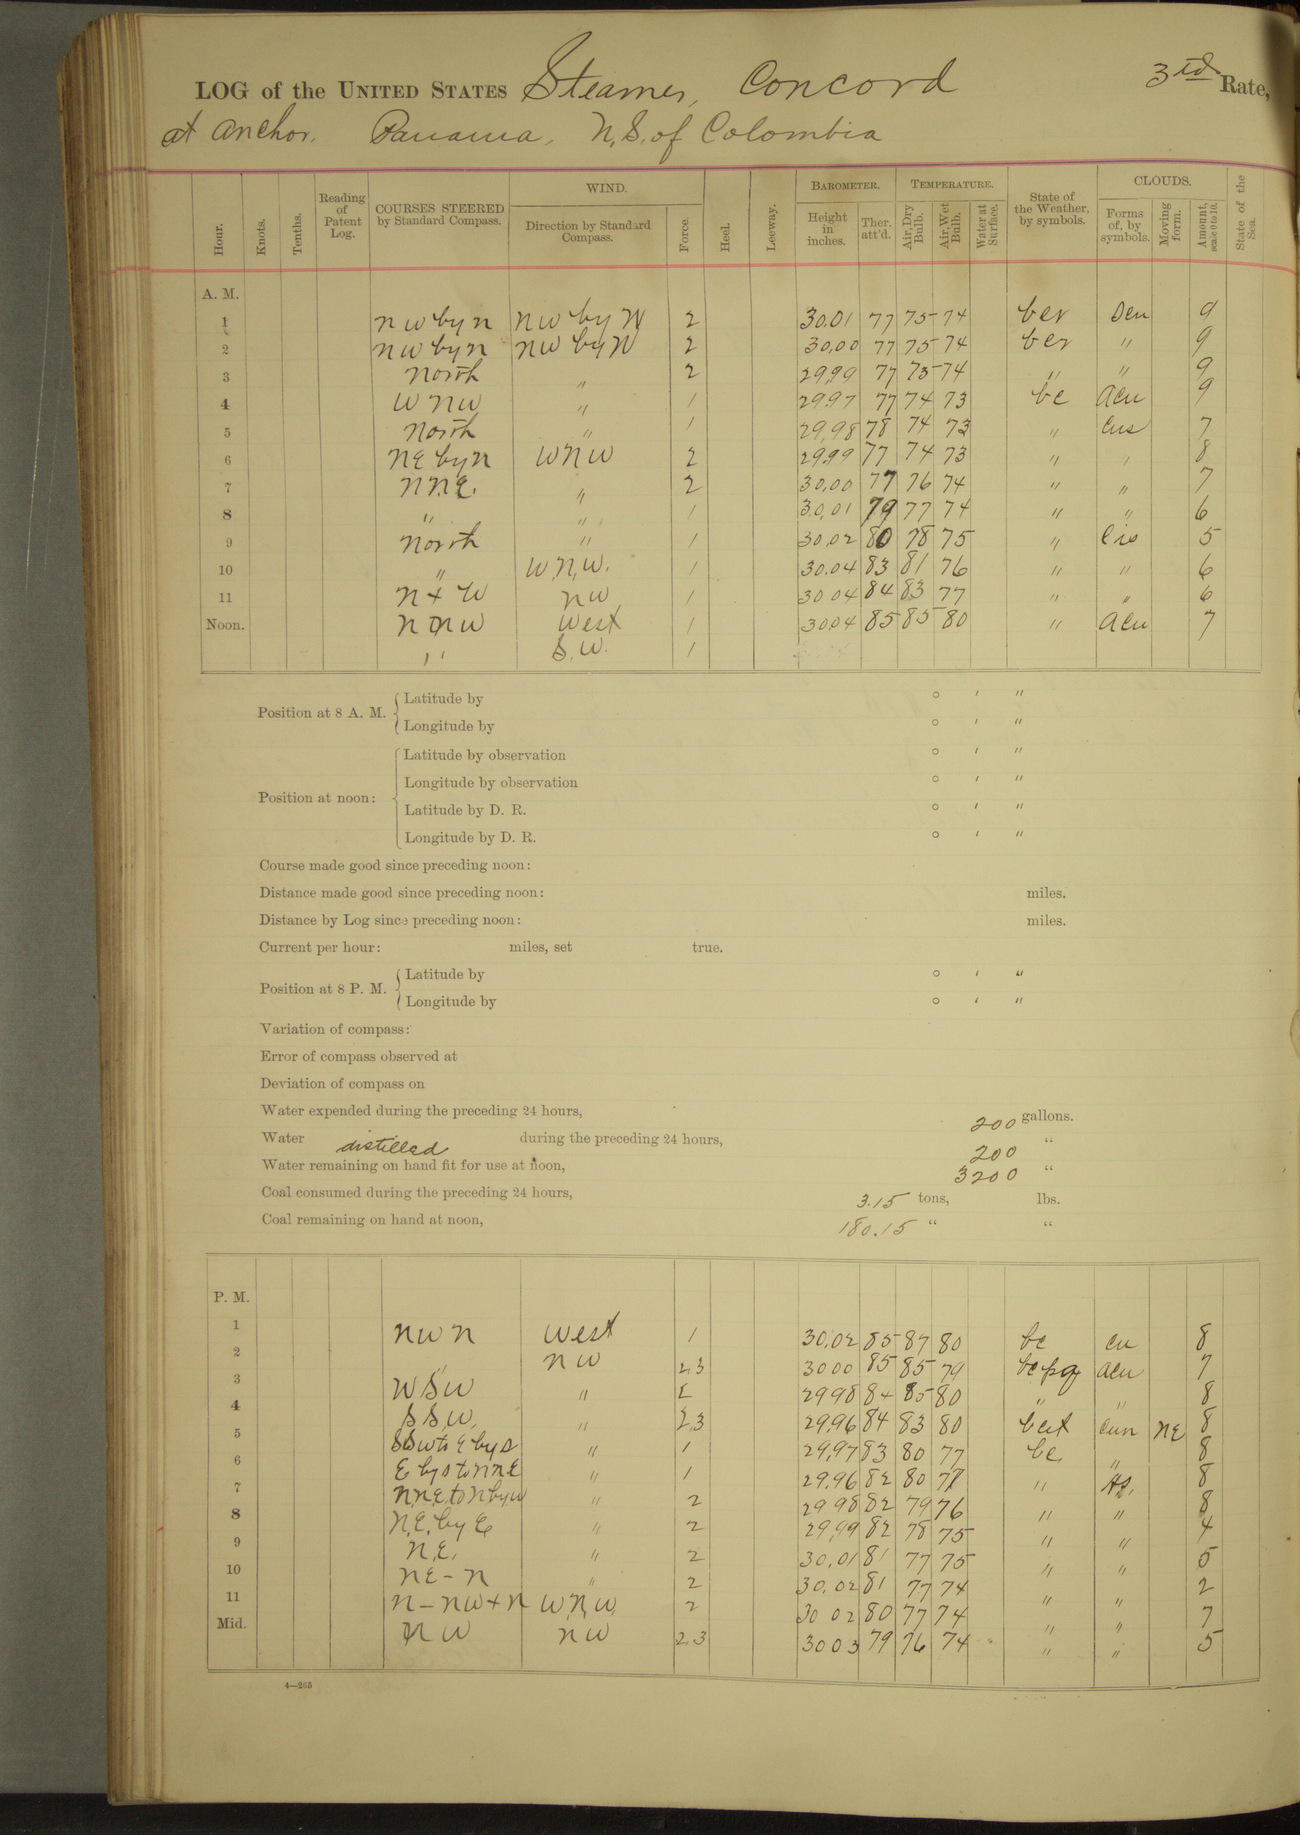 LOG of the UNITED STATES Steamer, Concord 3rd Rate,
at anchor. Panama, U.S. of Colombia
Hour. Knots. Tenths. Reading of Patent Log. COURSES STEERED by Standard Compass. WIND. Direction by Standard Compass. Force. Heel. Leeway. BAROMETER. Height in inches. Ther. att'd. TEMPERATURE. Air, Dry Bulb. Air, Wet Bulb. Water at Surface. State of the Weather, by symbols. CLOUDS. Forms of, by symbols. Moving form. Amount, scale 0 to 10. State of the Sea.
A. M.
1 NW by N NW by N 2 30.01 77 75 74 bcr 9
2 NW by N NW by N 2 30.00 77 75 74 bcr " 9
3 North " 2 29.99 77 75 74 " " 9
4 WNW " 1 29.97 77 74 73 bc acu 9
5 North " 1 29.98 78 74 73 " cus 7
6 NE by N WNW 2 29.99 77 74 73 " " 8
7 NNE. " 2 30.00 77 76 74 " " 7
8 " " 1 30.01 79 77 74 " " 6
9 North " 1 30.02 80 78 75 " 5
10 " W.N.W. 1 30.04 83 81 76 " " 6
11 N x W NW 1 30 04 84 83 77 " " 6
Noon. NNW West 1 30.04 85 85 80 " acu 7
" S.W. 1
Position at 8 A. M. Latitude by ° ' "
Longitude by ° ' "
Position at noon: Latitude by observation ° ' "
Longitude by observation ° ' "
Latitude by D. R. ° ' "
Longitude by D. R. ° ' "
Course made good since preceding noon:
Distance made good since preceding noon: miles.
Distance by Log since preceding noon: miles.
Current per hour: miles, set true.
Position at 8 P. M. Latitude by ° ' "
Longitude by ° ' "
Variation of compass:
Error of compass observed at
Deviation of compass on
Water expended during the preceding 24 hours, 200 gallons.
Water distilled during the preceding 24 hours, 200 "
Water remaining on hand fit for use at noon, 3200 "
Coal consumed during the preceding 24 hours, 3.15 tons, lbs.
Coal remaining on hand at noon, 180.15 " "
P. M.
1 NWN West 1 30.02 85 87 80 bc cu 8
2 " NW 2,3 30 00 85 85 79 bcpq acu 7
3 WSW " 2 29 98 84 85 80 " " 8
4 SSW. " 2,3 29.96 84 83 80 cun NE 8
5 SSW to E by S " 1 29.97 83 80 77 bc " 8
6 E by S to NNE " 1 29.96 82 80 77 " 8
7 N.N.E. to N by W " 2 29 98 82 79 76 " " 8
8 N.E. by E " 2 29.99 82 78 75 " " 4
9 N.E. " 2 30.01 81 77 75 " " 5
10 NE - N " 2 30.02 81 77 74 " " 2
11 N - NW x N W.N.W. 2 30 02 80 77 74 " " 7
Mid. NW NW 2,3 30 03 79 76 74 " " 5
4—265